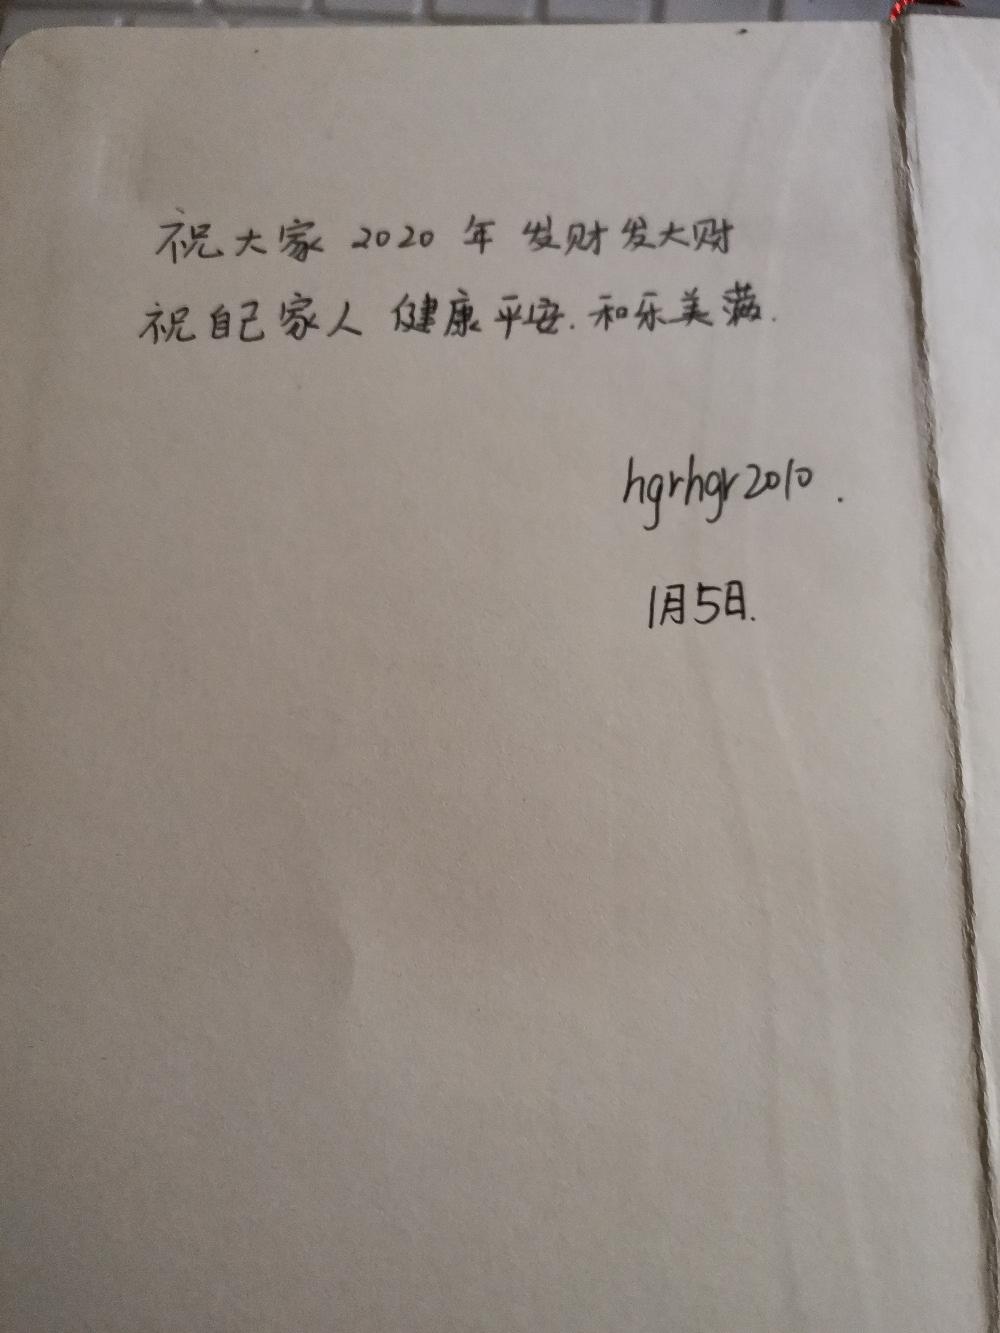 祝大家 2020 年 发财发大财
祝自己家人 健康平安.和乐美满.
hgrhgr2010.
1月5日.